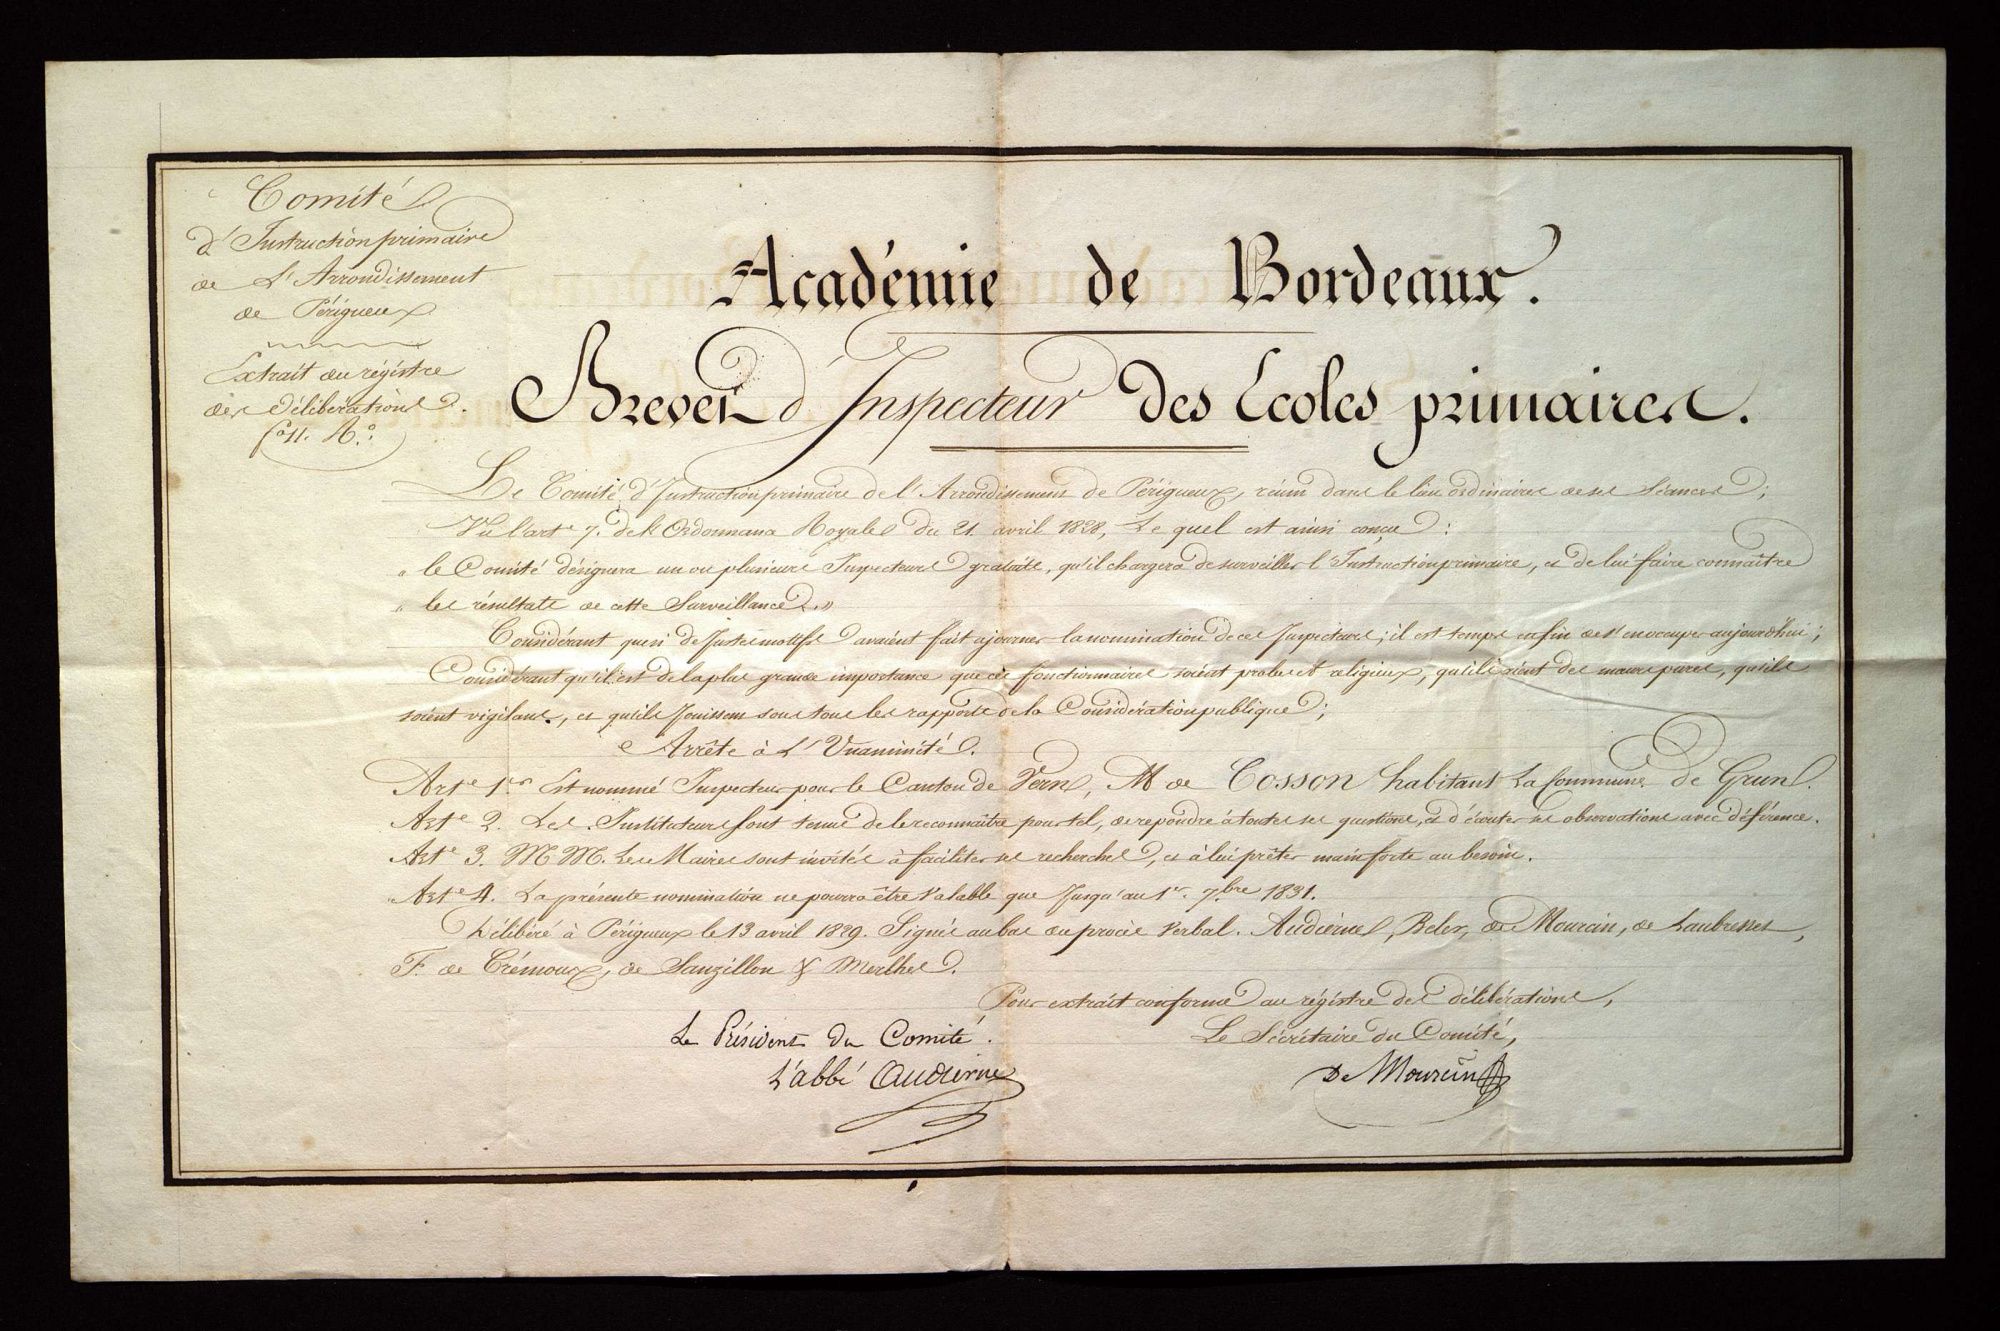 Comité
d'Instruction primaire
de L'Arrondissement
de Périgueux
Extrait du régistre
des délibérations.
fo 11. Ro.
Académie de Bordeaux.
Brevet d'Inspecteur des Ecoles primaires.
Le Comité d'Instruction primaire de l'Arrondissement de Périgueux, réuni dans le lieu ordinaire de ses Séances;
Vu l'arte 7. de l'Ordonnance Royale du 21. avril 1828, Le quel est ainsi conçu:
« le Comité désignera un ou plusieurs Inspecteurs gratuits, qu'il chargera de surveiller l'Instruction primaire, et de lui faire connaître
« les résultats de cette Surveillance.»
Considérant que si de Justes motifs avaient fait ajourner la nomination de ces Inspecteurs; il est temps enfin de s'en occuper aujourd'hui;
Considérant qu'il est de la plus grande importance que ces fonctionnaires soient probes et religieux, qu'ils aient des mœurs pures, qu'ils
soient vigilans, et qu'ils Jouissent sous tous les rapports de la Considération publique;
Arrête à L'Unanimité.
Arte 1er Est nommé Inspecteur pour le Canton de Vern, M de Cosson habitant La Commune de Grun.
Arte 2. Les Instituteurs sont tenus de le reconnaître pour tel, de repondre à toutes ses questions, et d'écouter ses observations avec déférence.
Arte 3. MM. Les Maires sont invités à faciliter ses recherches, et à lui prêter main forte au besoin.
Arte 4. La présente nomination ne pourra être Valable que Jusqu'au 1er. 7.bre 1831.
Délibéré à Périgueux le 13 avril 1829. Signés au bas du procès Verbal. Audierne, Beler, de Mourcin, de Laubresset,
F. de Crémoux, de Sanzillon & Merlhes.
Pour extrait conforme au régistre des délibérations,
Le Président du Comité.
L'abbé Audierne
Le Sécrétaire du Comité,
De Mourcin